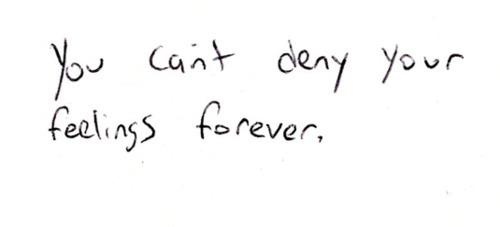 You can't deny your
feelings forever.